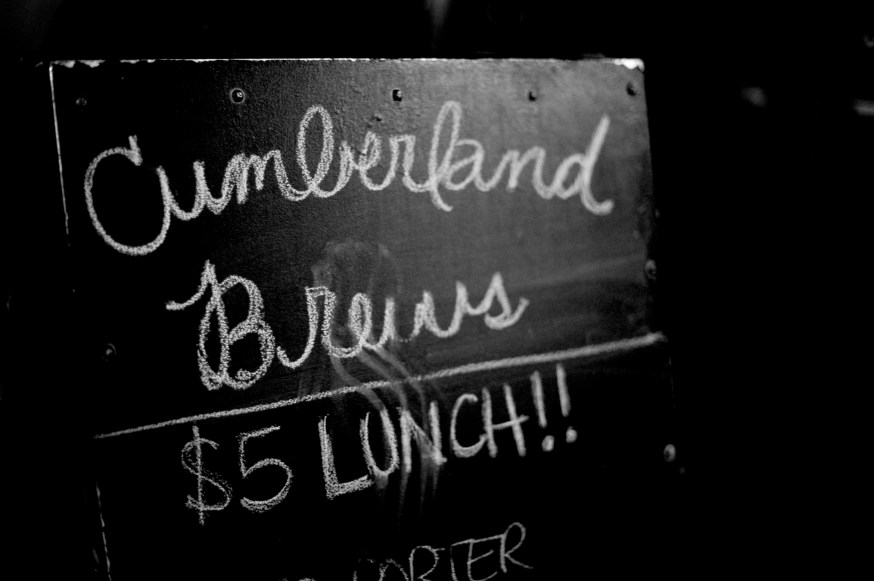 Cumberland
Brews
$5 LUNCH!!
PORTER